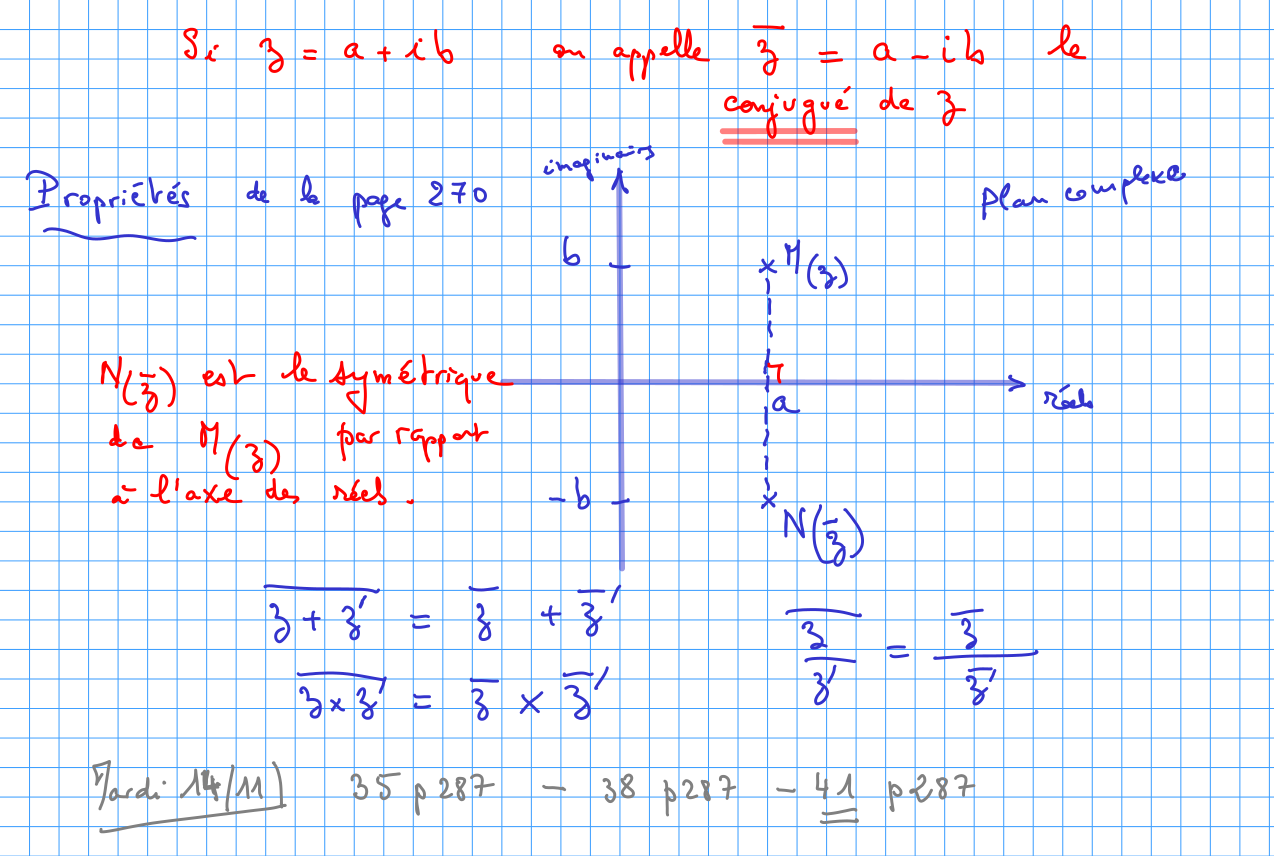 Si z = a + ib on appelle z̅ = a - ib le
conjugué de z
Propriétés de la page 270
imaginairs
plan complexe
b
M(z)
N(z̅) est le symétrique
de M(z) par rapport
à l'axe des réels.
a
réels
-b
N(z̅)
\overline{z + z'} = \overline{z} + \overline{z}'
\overline{z × z'} = \overline{z} × \overline{z}'
\overline{\frac{z}{z'}} = \frac{\overline{z}}{\overline{z}'}
Mardi 14/11 35 p 287 - 38 p 287 - 41 p 287